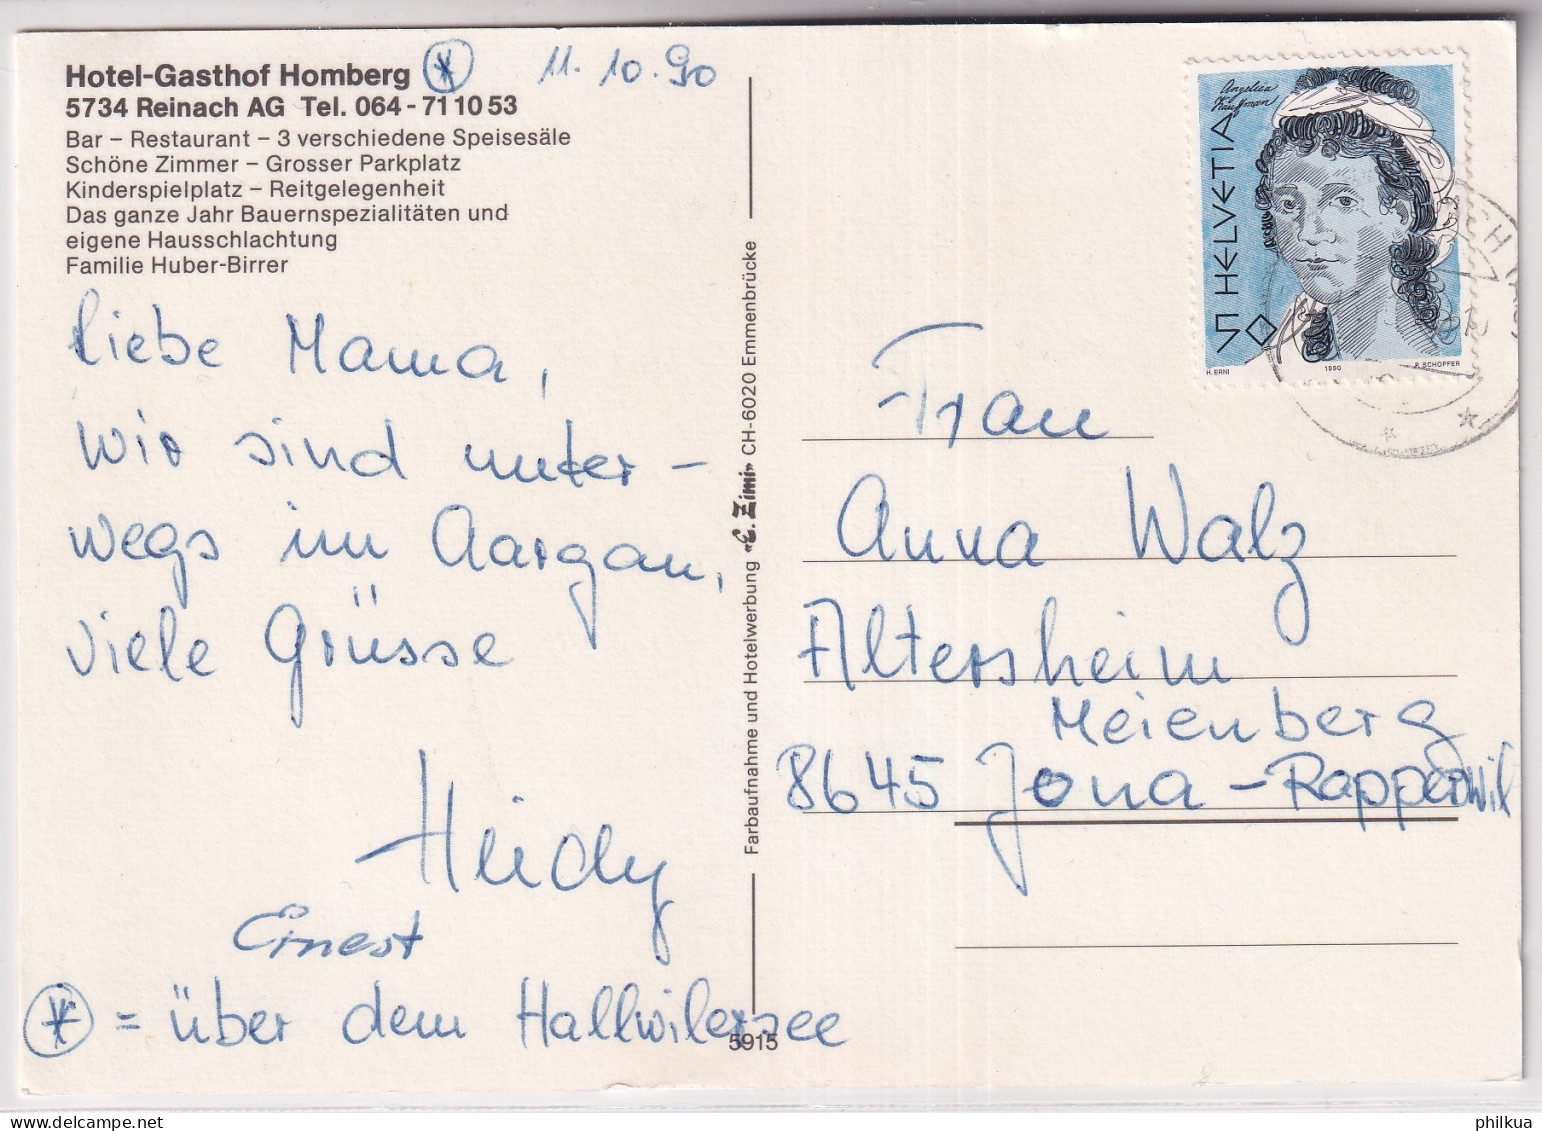 Hotel-Gasthof Homberg * 11.10.90
5734 Reinach AG Tel. 064-71 10 53
Bar – Restaurant – 3 verschiedene Speisesäle
Schöne Zimmer – Grosser Parkplatz
Kinderspielplatz – Reitgelegenheit
Das ganze Jahr Bauernspezialitäten und
eigene Hausschlachtung
Familie Huber-Birrer
liebe Mama,
wir sind unter-
wegs im Aargau,
viele Grüsse
Heidy
Ernest
* = über dem Hallwilersee
Farbaufnahme und Hotelwerbung «E. Zimi» CH-6020 Emmenbrücke
5915
Angelica
Kauffman
HELVETIA
50
H. ERNI 1990 P. SCHOPFER
Frau
Anna Walz
Altersheim
Meienberg
8645 Jona-Rapperswil
philkua